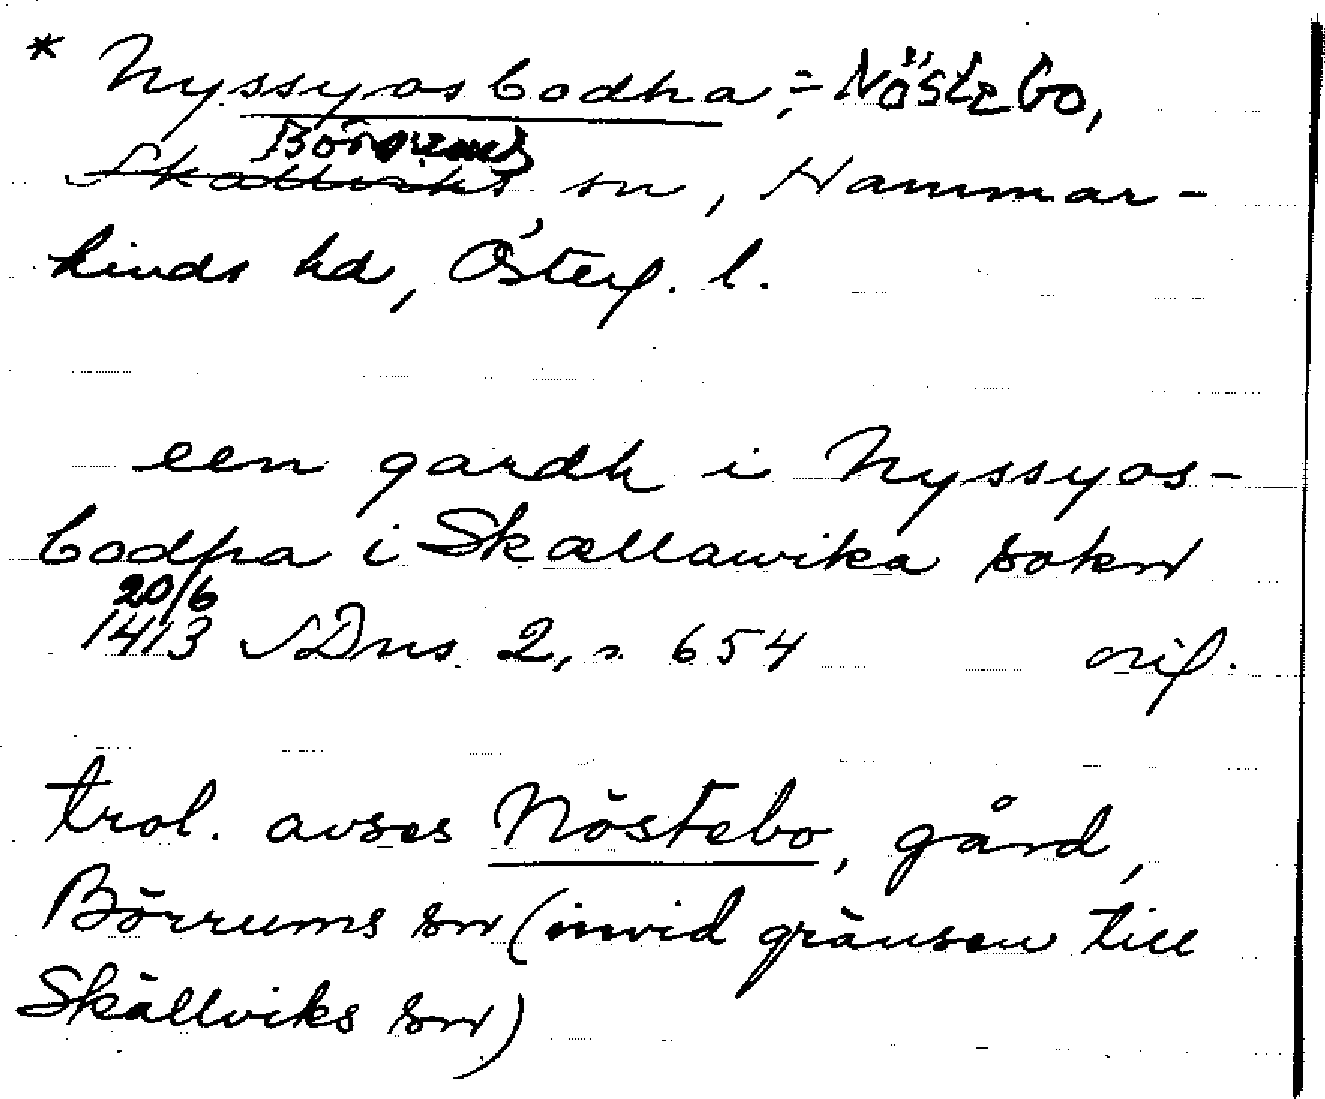 * Nyssyosbodha ÷ Nöstebo,
Börrums
Skällviks sn, Hammar-
kinds hd, Österg. l.
een gardh i Nyssyos-
bodha i Skællawika sokn
20/6
1413 SDns 2, s. 654 orig.
trol. avses Nöstebo, gård,
Börrums sn (invid gränsen till
Skällviks sn)